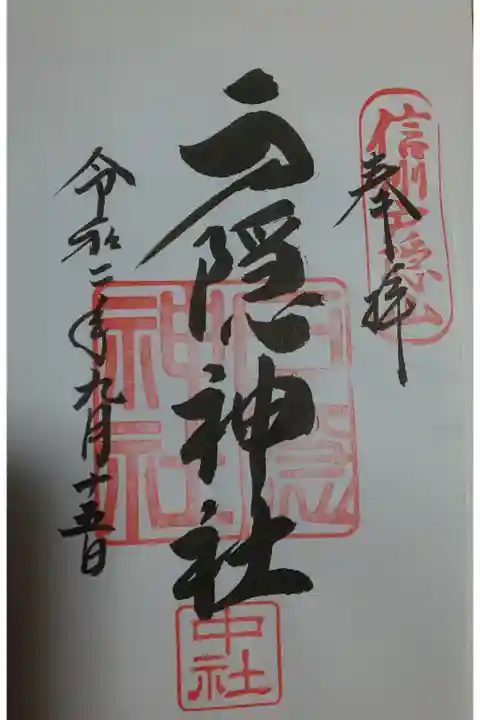 信州戸隠山
奉拝
戸隠神社
戸隠神社
中社
令和二年九月十五日